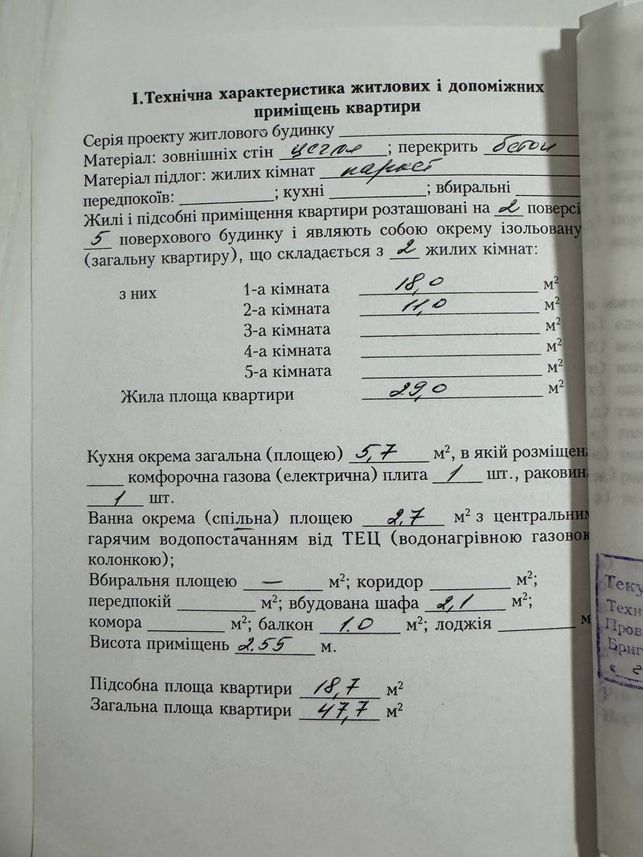 І.Технічна характеристика житлових і допоміжних
приміщень квартири
Серія проекту житлового будинку
Матеріал: зовнішніх стін цегла; перекрить бетон
Матеріал підлог: жилих кімнат паркет
передпокоїв: ; кухні ; вбиральні
Жилі і підсобні приміщення квартири розташовані на 2 поверсі
5 поверхового будинку і являють собою окрему ізольовану
(загальну квартиру), що складається з 2 жилих кімнат:
з них 1-а кімната 18,0 м²
2-а кімната 11,0 м²
3-а кімната м²
4-а кімната м²
5-а кімната м²
Жила площа квартири 29,0 м²
Кухня окрема загальна (площею) 5,7 м², в якій розміщен
комфорочна газова (електрична) плита 1 шт., раковин
1 шт.
Ванна окрема (спільна) площею 2,7 м² з центральним
гарячим водопостачанням від ТЕЦ (водонагрівною газовою
колонкою);
Вбиральня площею — м²; коридор м²;
передпокій м²; вбудована шафа 2,1 м²;
комора м²; балкон 1.0 м²; лоджія м
Висота приміщень 2.55 м.
Підсобна площа квартири 18,7 м²
Загальна площа квартири 47,7 м²
Теку
Техн
Пров
Бриг